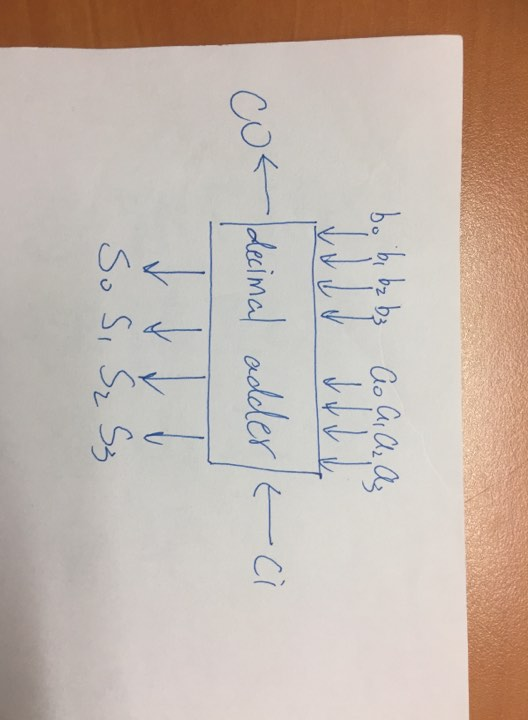 b0 b1 b2 b3 a0 a1 a2 a3
CO decimal adder Ci
S0 S1 S2 S3